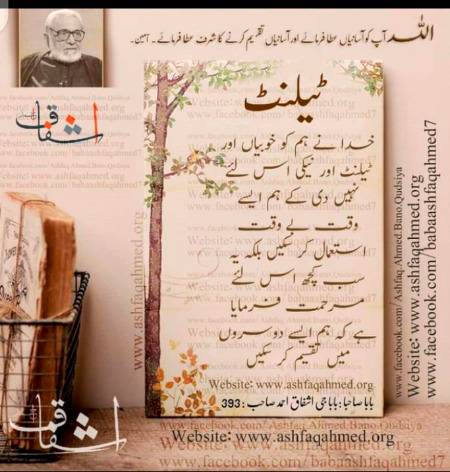 اللہ آپ کو آسانیاں عطا فرمائے اور آسانیاں تقسیم کرنے کا شرف عطا فرمائے۔ آمین۔
اشفاق
ٹیلنٹ
خدا نے ہم کو خوبیاں اور
ٹیلنٹ اور نیکی اس لئے
نہیں دی کے ہم ایسے
وقت بے وقت
استعمال کر سکیں بلکہ یہ
سب کچھ اس لئے
مرحمت فرمایا
ہے کہ ہم ایسے دوسروں
میں تقسیم کر سکیں
Website: www.ashfaqahmed.org
بابا صاحبا: بابا جی اشفاق احمد صاحب : 393
www.ashfaqahmed.org
www.facebook.com/ Ashfaq Ahmed Bano Qudsiya
Website: www.ashfaqahmed.org
www.facebook.com/babaashfaqahmed7
اشفاق
Website: www.ashfaqahmed.org